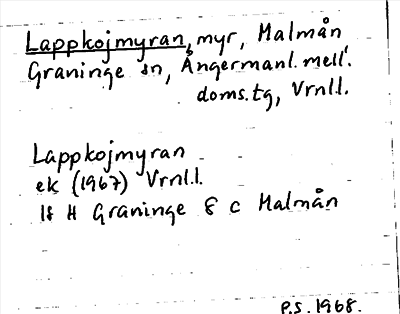 Lappkojmyran, myr, Malmån
Graninge sn, Ångermanl. mell.
doms.tg, Vrnl.l.
Lappkojmyran
ek (1967) Vrnl.l.
18 H Graninge 8 c Malmån
P.S. 1968.